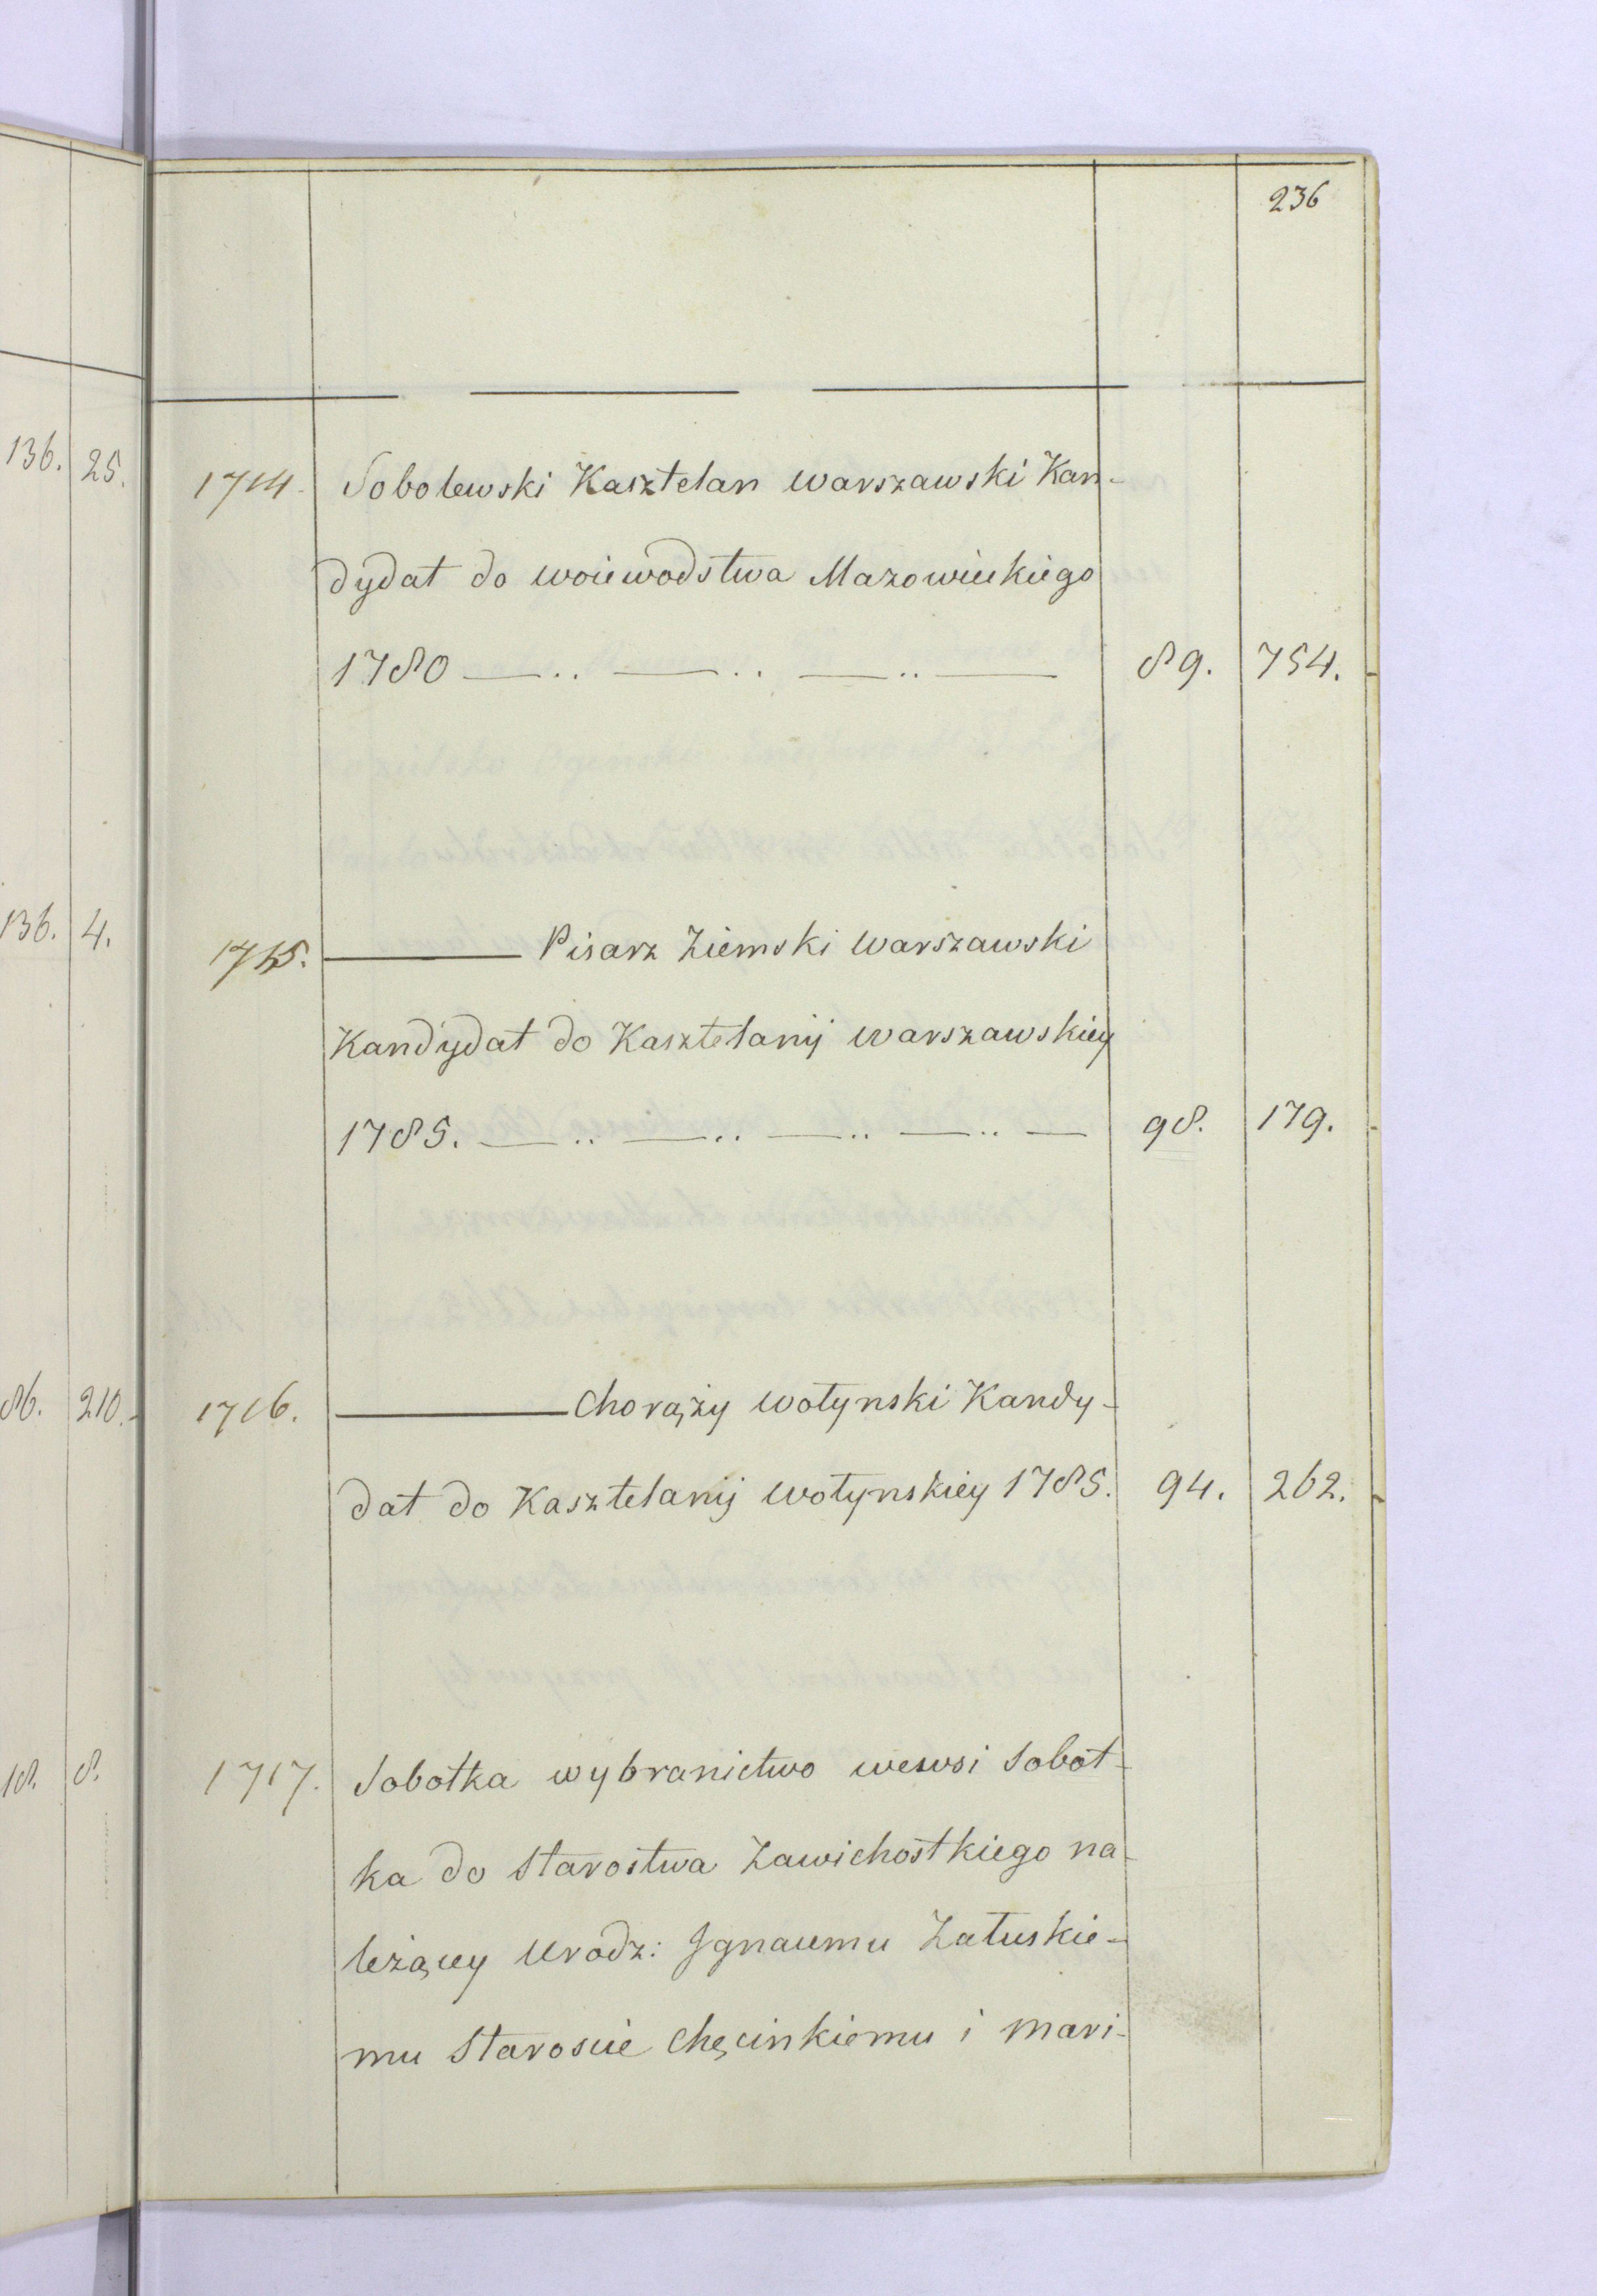 236
136. 25.
1714. Sobolewski Kasztelan warszawski Kan-
dydat do woiewodstwa Mazowieckiego
1780 — .. — .. — .. — 89. 754.
136. 4.
1715. ——— Pisarz Ziemski warszawski
Kandydat do Kasztelanij warszawskiey
1785. — .. — .. — .. — .. — 98. 179.
86. 210.
1716. ——— Chorąży wołynski Kandy-
dat do Kasztelanij wołynskiey 1785. 94. 262.
18. 8.
1717. Sobotka wybranictwo wewsi Sobot-
ka do Starostwa Zawichostkiego na-
leżącey Urodz: Ignacemu Załuskie-
mu Staroscie Chęcinkiemu i Mari-